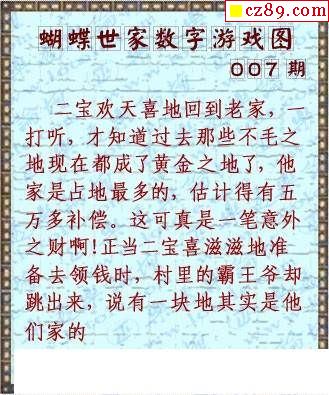 cz89.com
蝴蝶世家数字游戏图
007期
二宝欢天喜地回到老家，一
打听，才知道过去那些不毛之
地现在都成了黄金之地了，他
家是占地最多的，估计得有五
万多补偿。这可真是一笔意外
之财啊!正当二宝喜滋滋地准
备去领钱时，村里的霸王爷却
跳出来，说有一块地其实是他
们家的